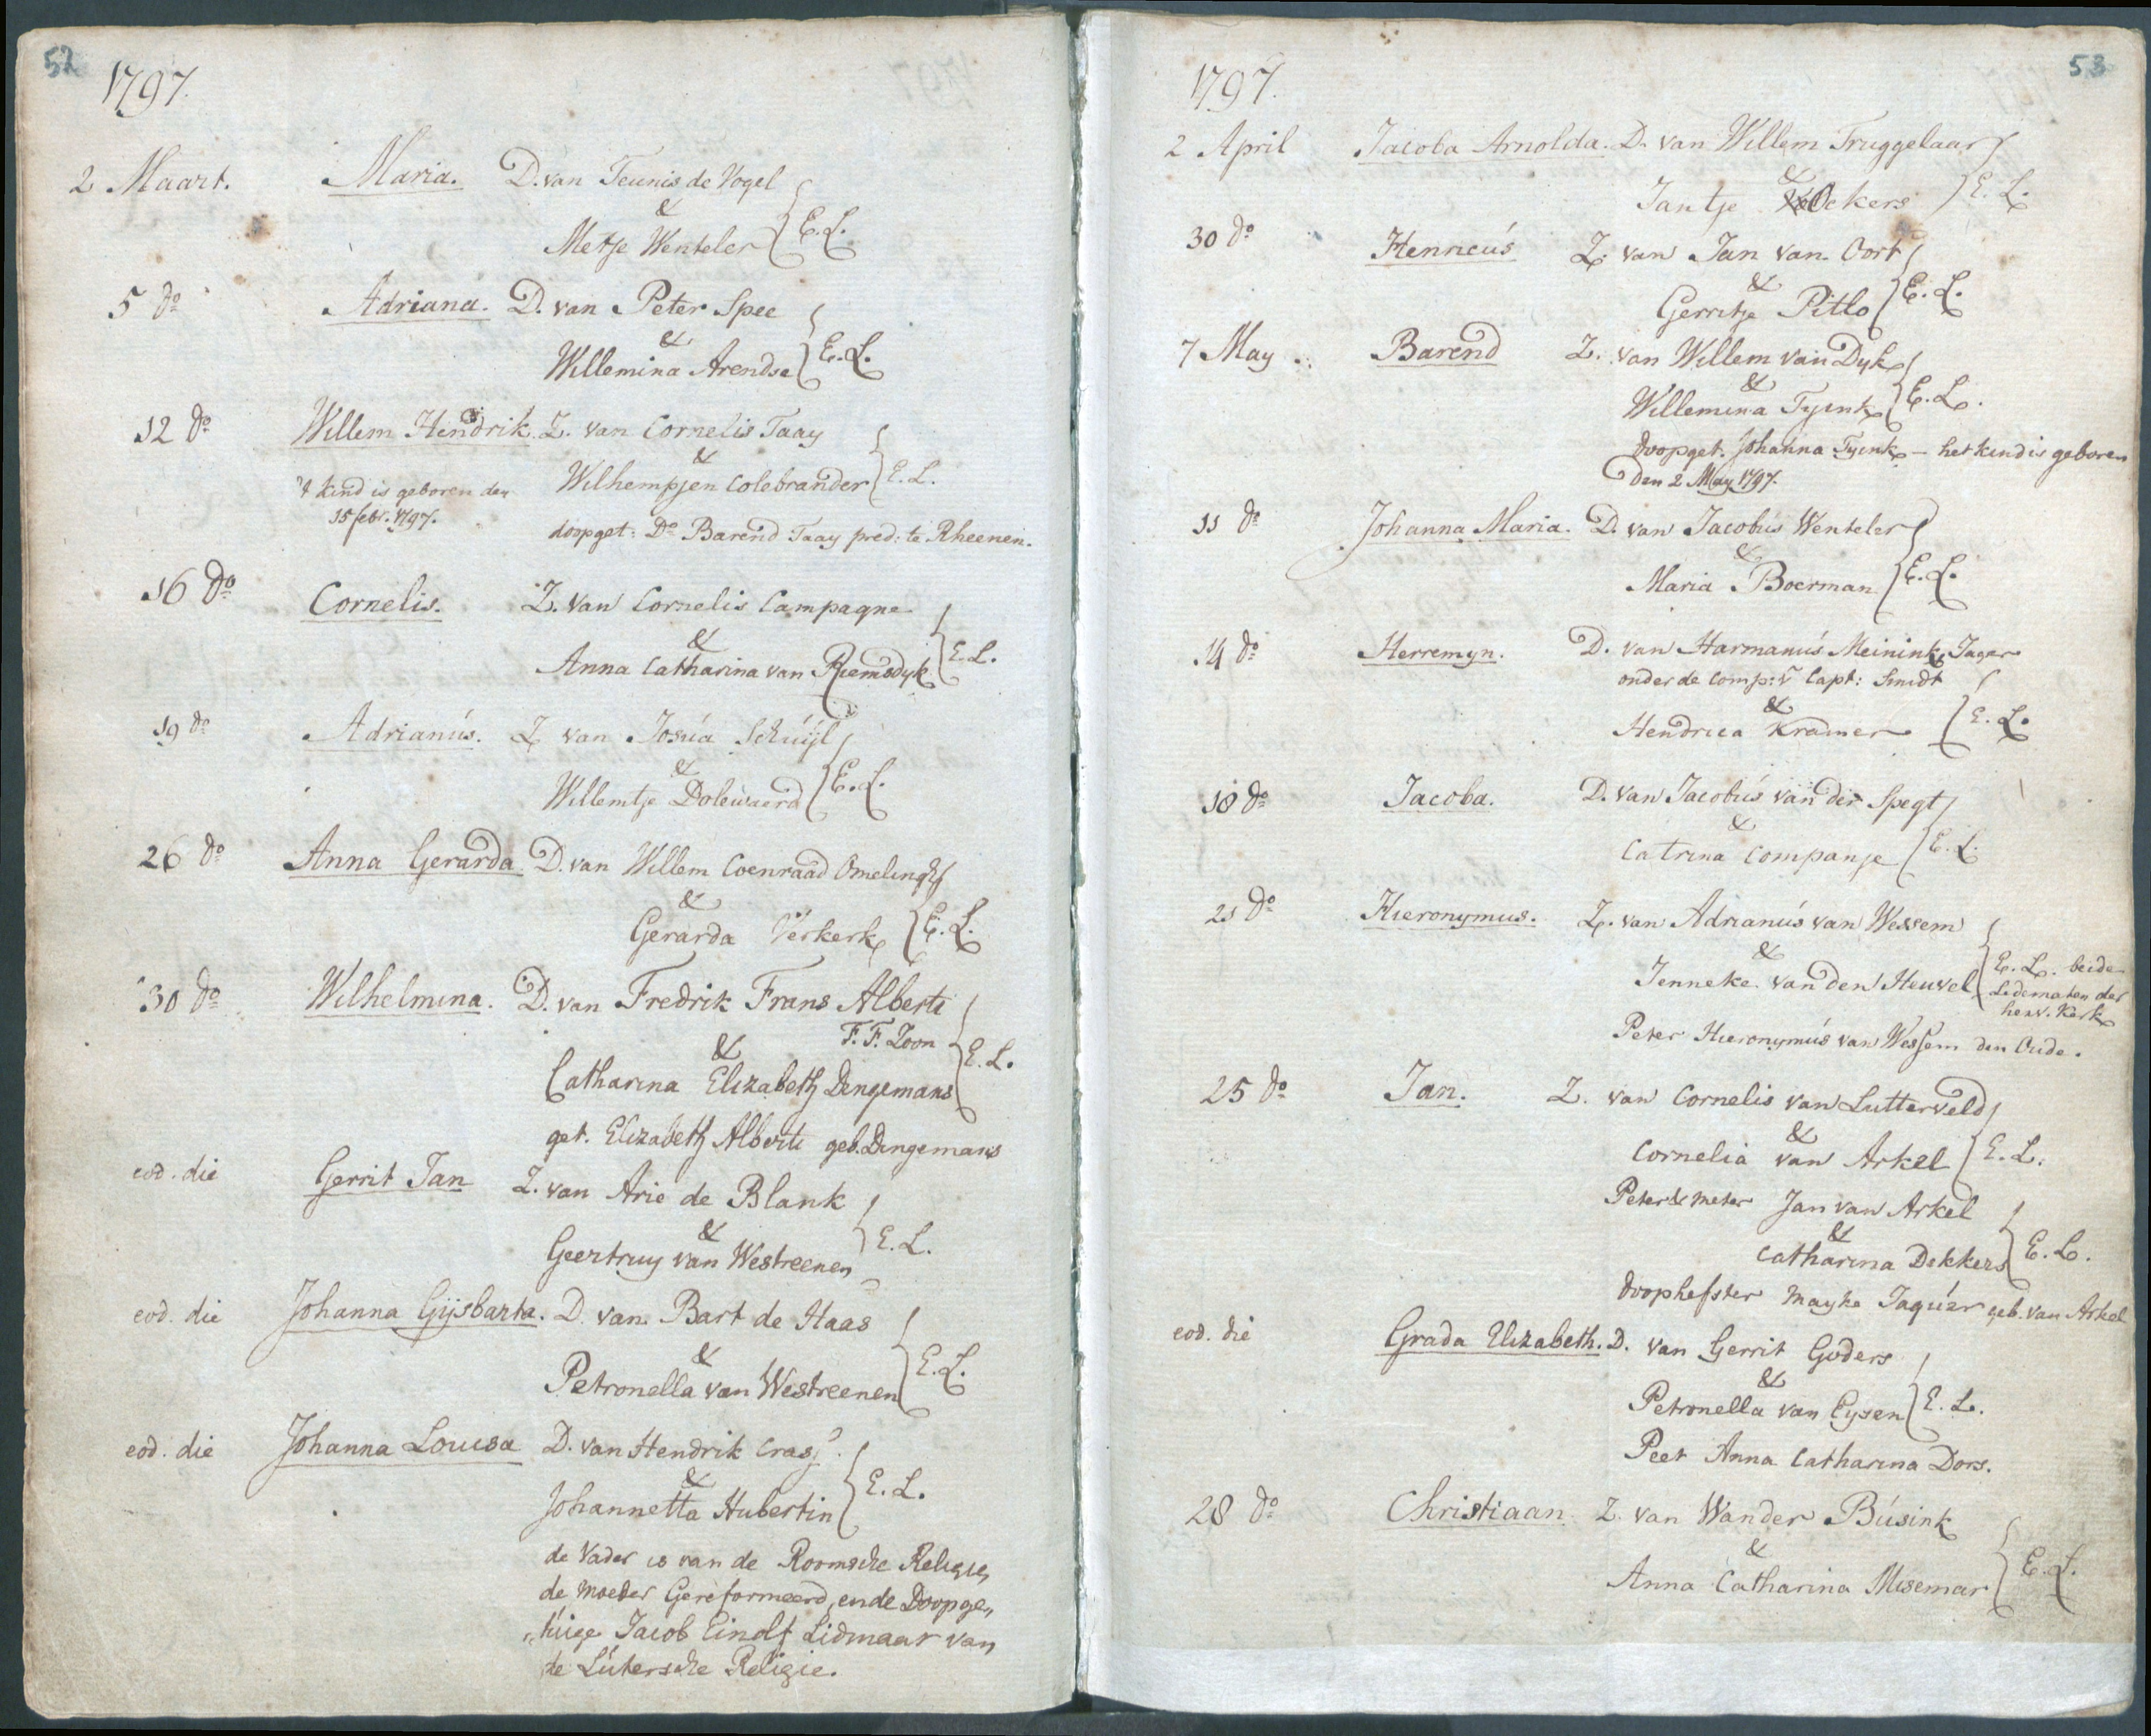 52
1797.
2 Maart. Maria. D. van Teunis de Vogel
&
Metje Wenteler E. L.
5 do Adriana. D. van Peter Spee
&
Willemina Arendse E. L.
12 do Willem Hendrik. Z. van Cornelis Taay
&
't kind is geboren den Wilhempjen Colebrander E. L.
15 febr. 1797.
doopget: Do Barend Taay pred: te Rheenen.
16 do Cornelis. Z. van Cornelis Campagne
&
Anna Catharina van Riemsdyk E. L.
19 do Adrianús. Z van Josúa Schúÿl
&
Willemtje Dolewaerd E. L.
26 do Anna Gerarda. D. van Willem Coenraad Omelingh
&
Gerarda Verkerk E. L.
30 do Wilhelmina. D. van Fredrik Frans Alberti
F. F. Zoon
&
Catharina Elizabeth Dingemans E. L.
get. Elizabeth Alberti geb. Dingemans
eod. die Gerrit Jan Z. van Arie de Blank
&
Geertruy van Westreenen E. L.
eod. die Johanna Gijsbarta. D. van Bart de Haas
&
Petronella van Westreenen E. L.
eod. die Johanna Louisa D. van Hendrik Cras
&
Johannetta Hubertin E. L.
de Vader is van de Roomsche Religie,
de moeder Gereformeerd, en de Doopge„
„túige Jacob Einolf Lidmaar van
de Lútersche Religie.
53
1797.
2 April Jacoba Arnolda. D. van Willem Truggelaar
&
Jantje Ockers E. L.
30 do Henricús Z. van Jan van Oort
&
Gerritje Pitlo E. L.
7 May Barend Z. van Willem van Dyk
&
Willemina Tyink E. L.
doopget. Johanna Tyink - het kind is geboren
Den 2 May 1797.
11 do Johanna Maria. D. van Jacobús Wenteler
&
Maria Boerman E. L.
14 do Herremyn. D. van Harmanús Meinink, Jager
onder de Comp: v Capt: Smidt
&
Hendrica Kramer E. L.
18 do Jacoba. D. van Jacobús van der Spegt
&
Catrina Companje E. L.
21 do Hieronymus. Z. van Adrianús van Wessem
&
Jenneke van den Heuvel E. L. beide
Ledematen der
herv. Kerk
Peter Hieronymús van Wessem den Oude.
25 do Jan. Z. van Cornelis van Lutterveld
&
Cornelia van Arkel E. L.
Peter & meter Jan van Arkel
&
Catharina Dekkers E. L.
doophefster Mayke Jaqúer geb. van Arkel
eod. die Grada Elizabeth. D. van Gerrit Goders
&
Petronella van Eysen E. L.
Peet Anna Catharina Dors.
28 do Christiaan. Z. van Wander Búsink
&
Anna Catharina Misemar E. L.